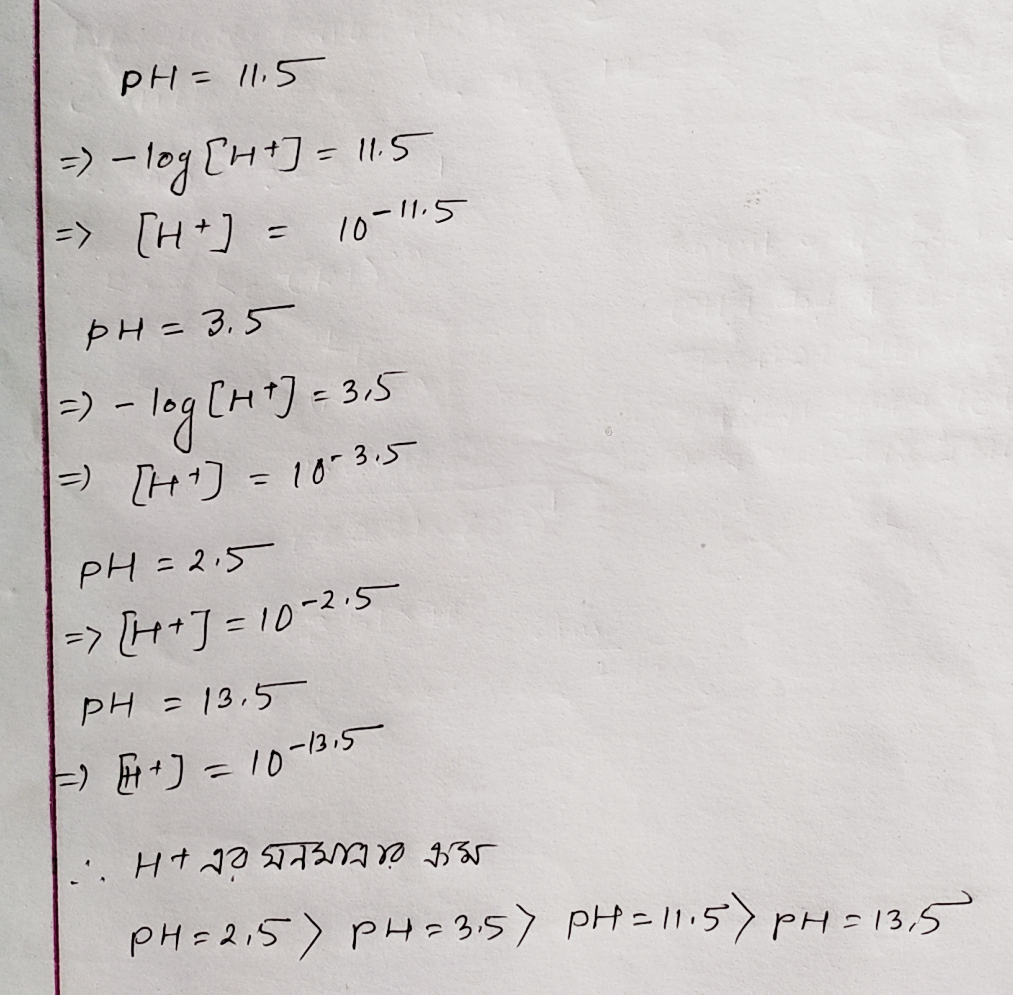 pH = 11.5
=> -log [H+] = 11.5
=> [H+] = 10^-11.5
pH = 3.5
=> -log [H+] = 3.5
=> [H+] = 10^-3.5
pH = 2.5
=> [H+] = 10^-2.5
pH = 13.5
=> [H+] = 10^-13.5
∴ H+ এর ঘনমাত্রার ক্রম
pH = 2.5 > pH = 3.5 > pH = 11.5 > pH = 13.5